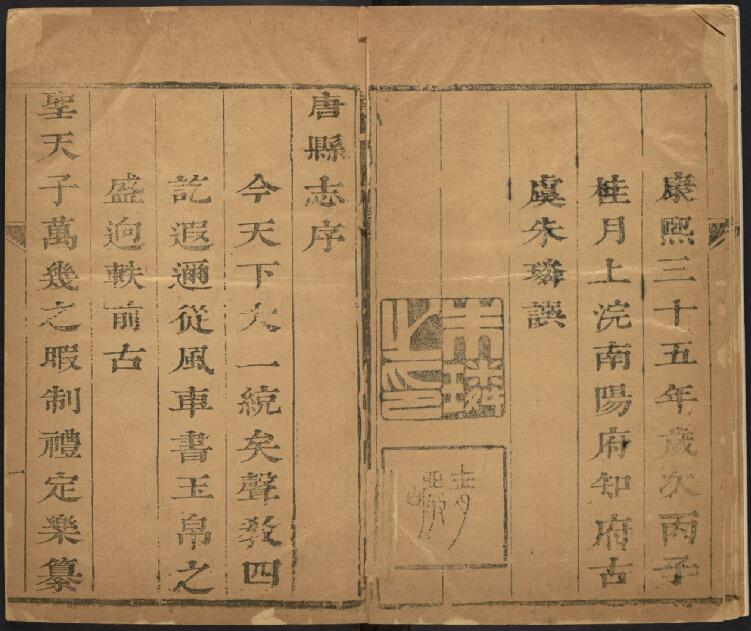 康熙三十五年歲次丙子
桂月上浣南陽府知府古
虞朱璘譔
朱璘之印
青巖
唐縣志序
今天下大一統矣聲敎四
訖遐邇從風車書玉帛之
盛迥軼前古
聖天子萬幾之暇制禮定樂纂